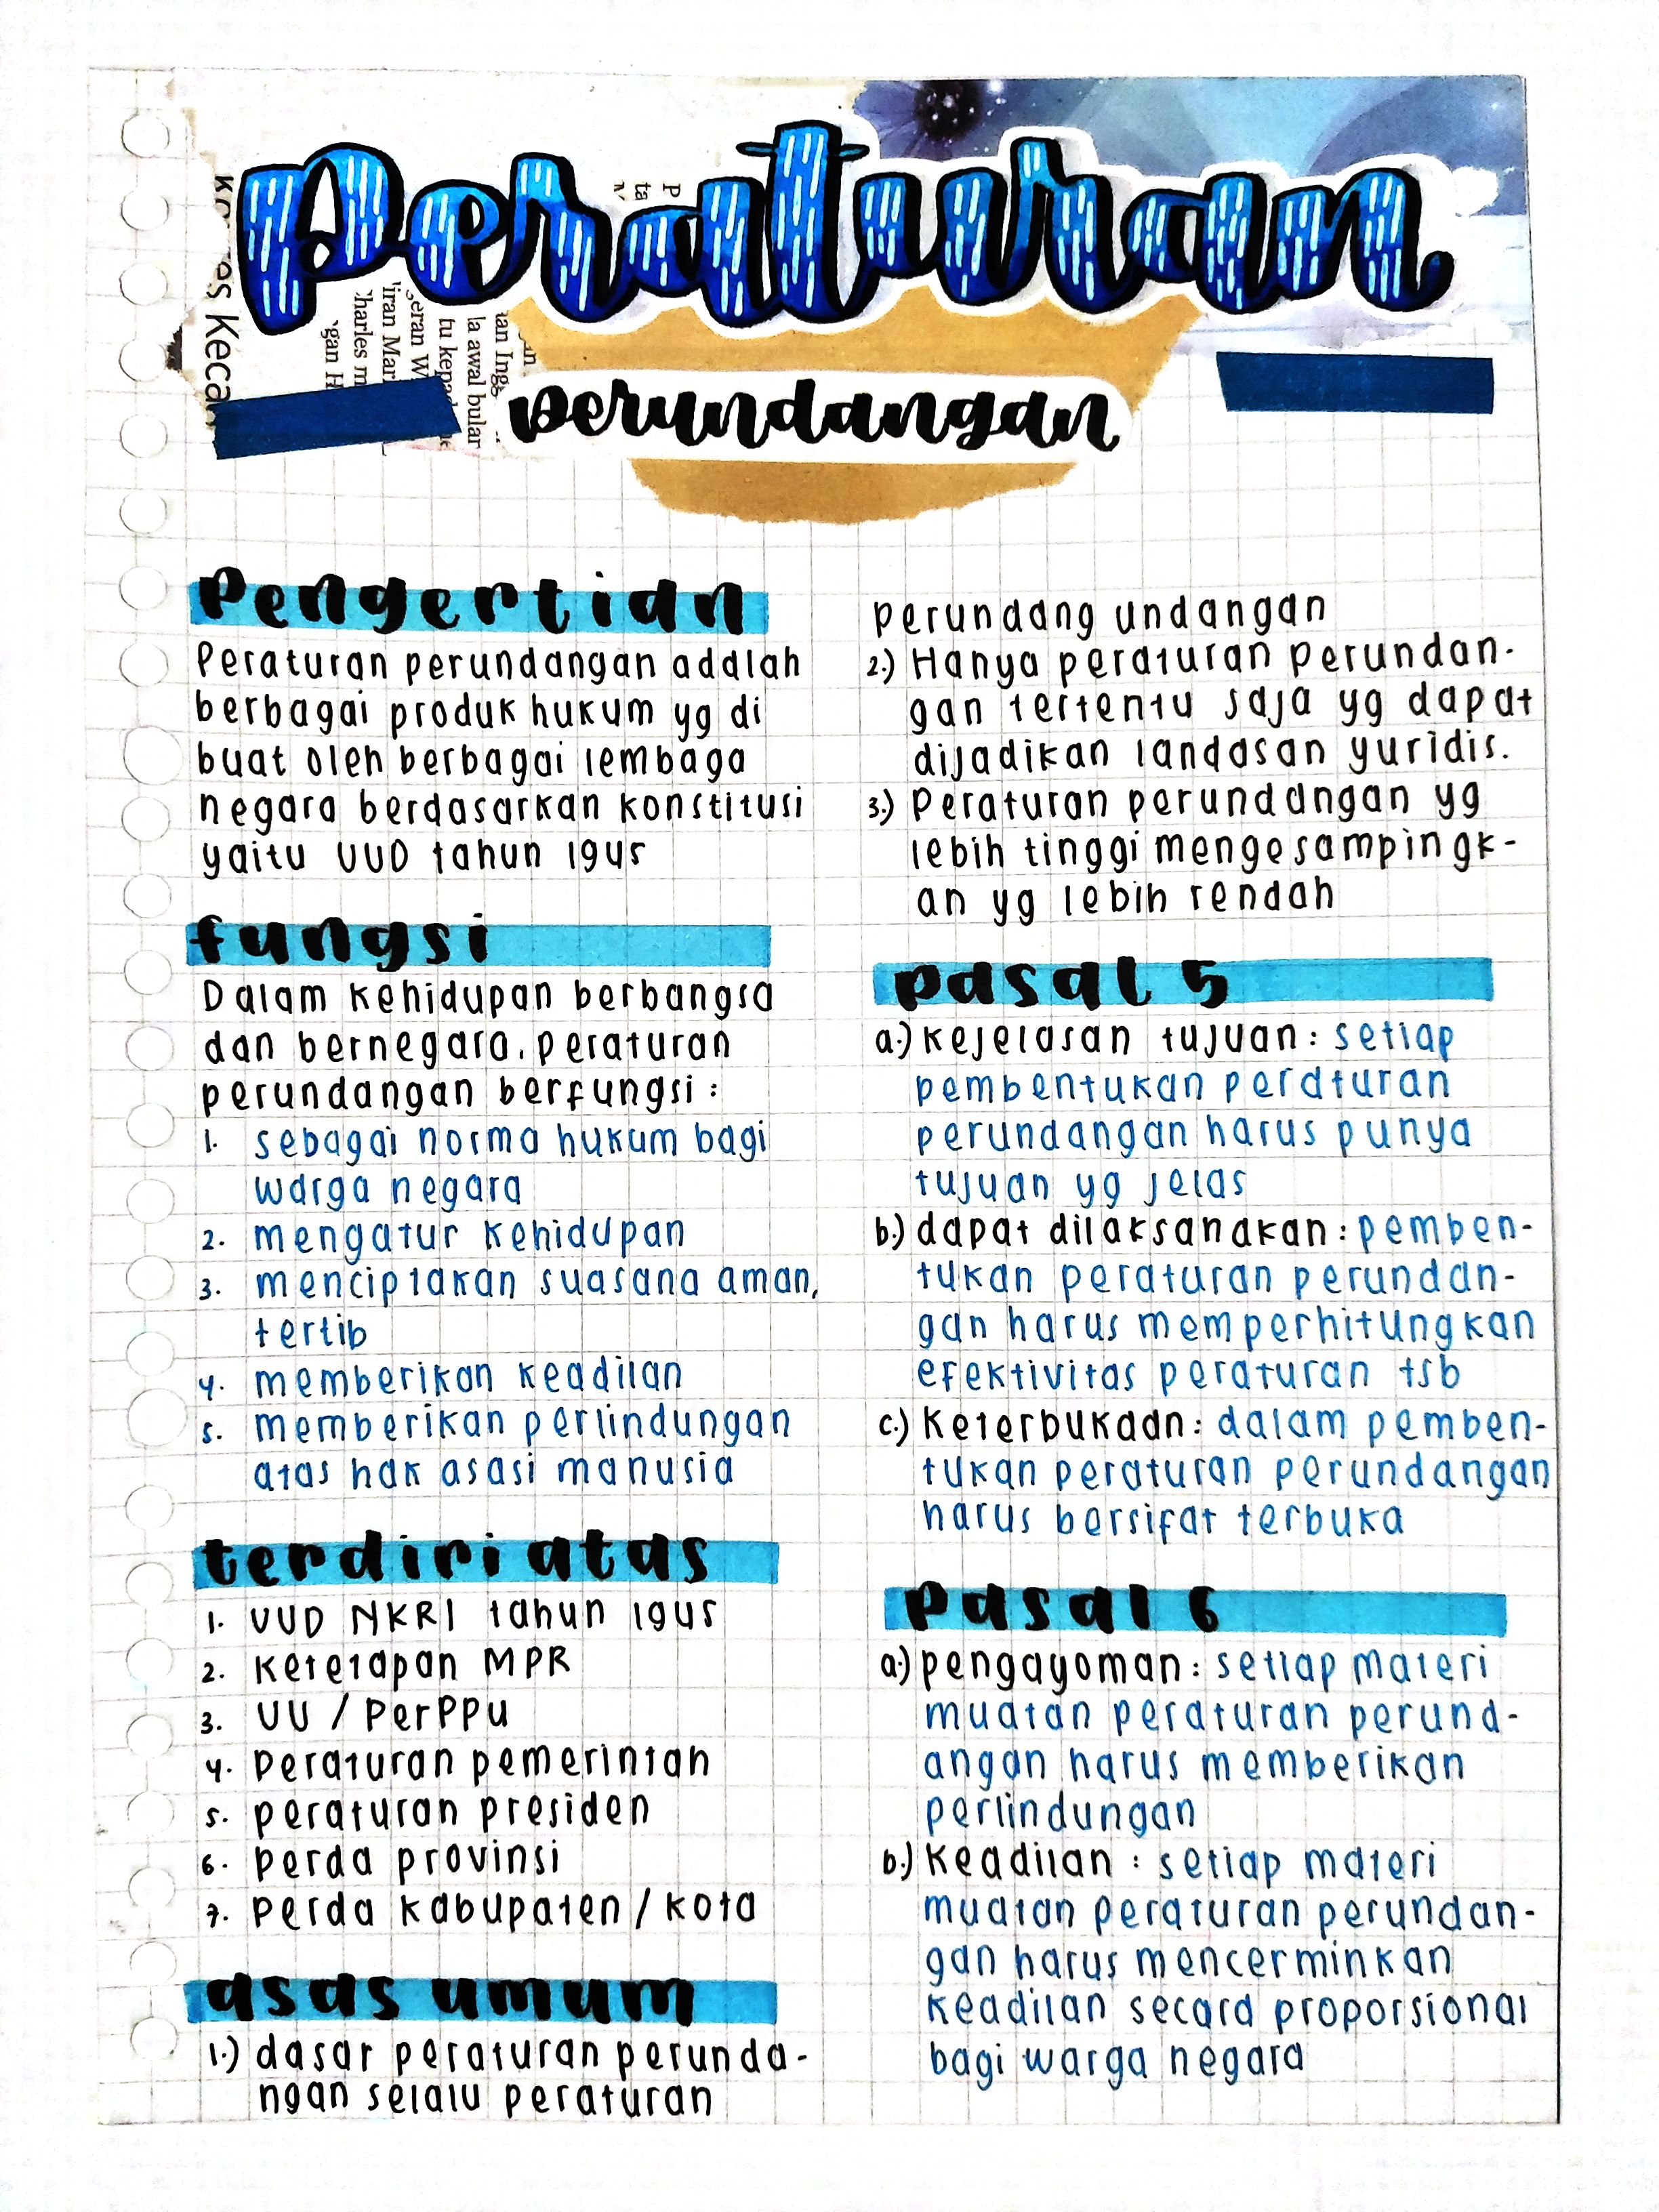 Peraturan
perundangan
Kecam
Pengertian
Peraturan perundangan adalah
berbagai produk hukum yg di
buat oleh berbagai lembaga
negara berdasarkan konstitusi
yaitu UUD tahun 1945
fungsi
Dalam kehidupan berbangsa
dan bernegara. peraturan
perundangan berfungsi :
1. sebagai norma hukum bagi
warga negara
2. mengatur kehidupan
3. menciptakan suasana aman,
tertib
4. memberikan keadilan
5. memberikan perlindungan
atas hak asasi manusia
terdiri atas
1. UUD NKRI tahun 1945
2. Ketetapan MPR
3. UU / PerPPu
4. peraturan pemerintah
5. peraturan presiden
6. perda provinsi
7. perda kabupaten / kota
asas umum
1.) dasar peraturan perunda-
ngan selalu peraturan
perundang undangan
2.) Hanya peraturan perundan-
gan tertentu saja yg dapat
dijadikan landasan yuridis.
3.) Peraturan perundangan yg
lebih tinggi mengesampingk-
an yg lebih rendah
pasal 5
a.) kejelasan tujuan : setiap
pembentukan peraturan
perundangan harus punya
tujuan yg jelas
b.) dapat dilaksanakan : pemben-
tukan peraturan perundan-
gan harus memperhitungkan
efektivitas peraturan tsb
c.) Keterbukaan : dalam pemben-
tukan peraturan perundangan
harus bersifat terbuka
pasal 6
a.) pengayoman : setiap materi
muatan peraturan perund-
angan harus memberikan
perlindungan
b.) keadilan : setiap materi
muatan peraturan perundan-
gan harus mencerminkan
keadilan secara proporsional
bagi warga negara